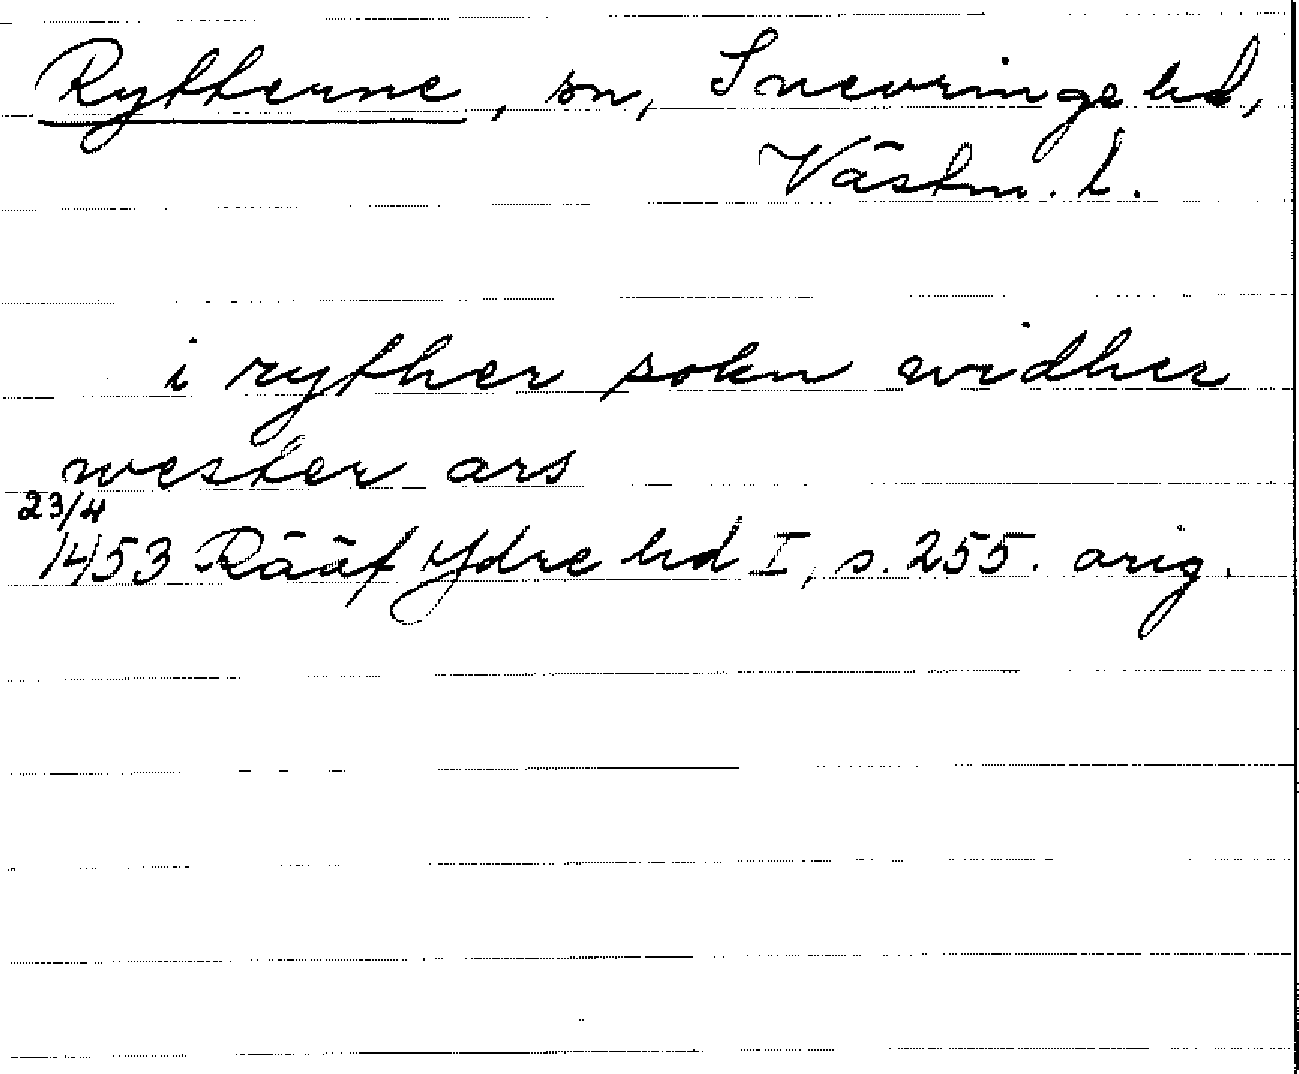 Rytterne, sn, Snevringe hd,
Västm. l.
i ryther sokn widher
wester ars
23/4
1453 Rääf Ydre hd I, s. 255. orig.